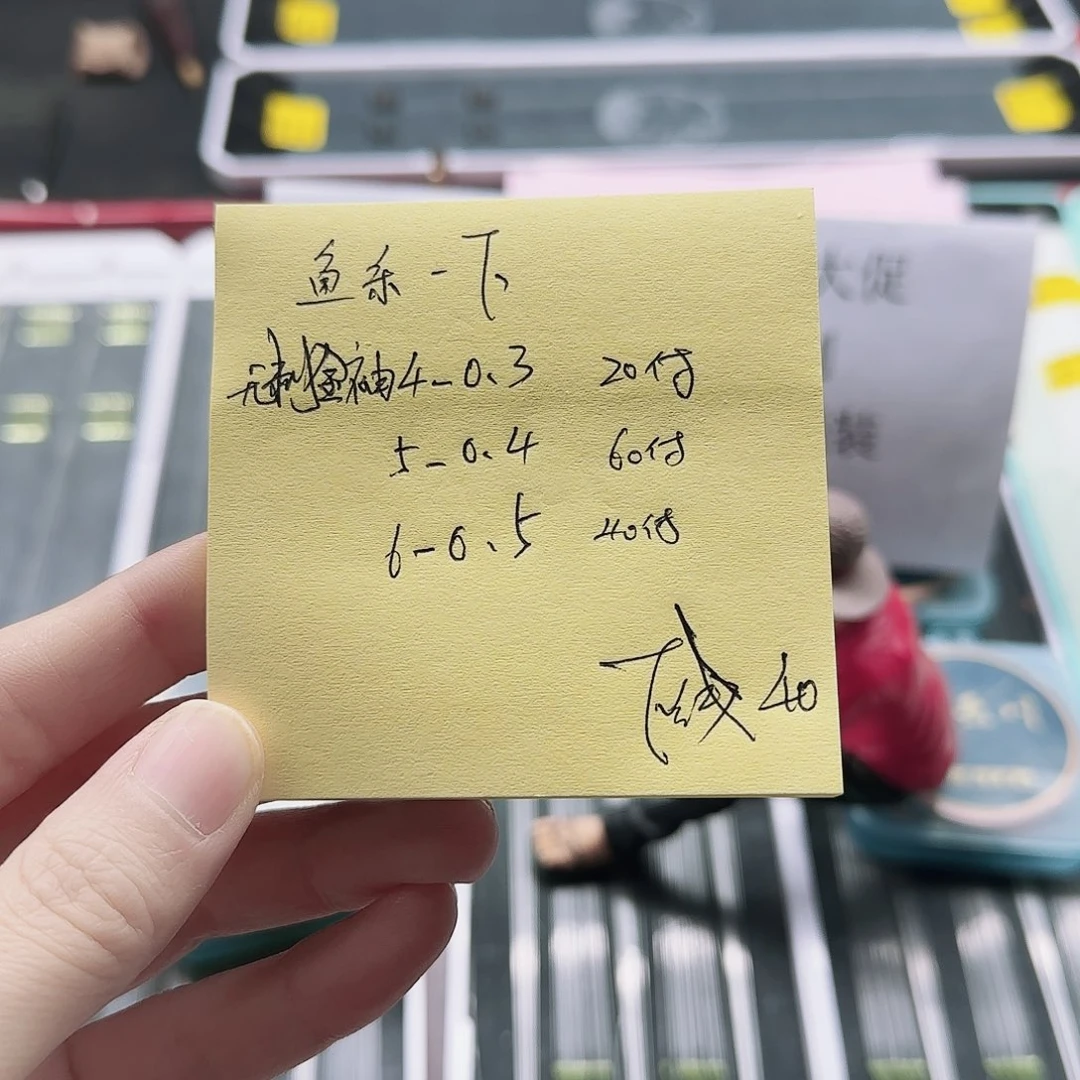 鱼乐一下
无刺金袖4-0.3 20付
5-0.4 60付
6-0.5 40付
下线40
大促
装